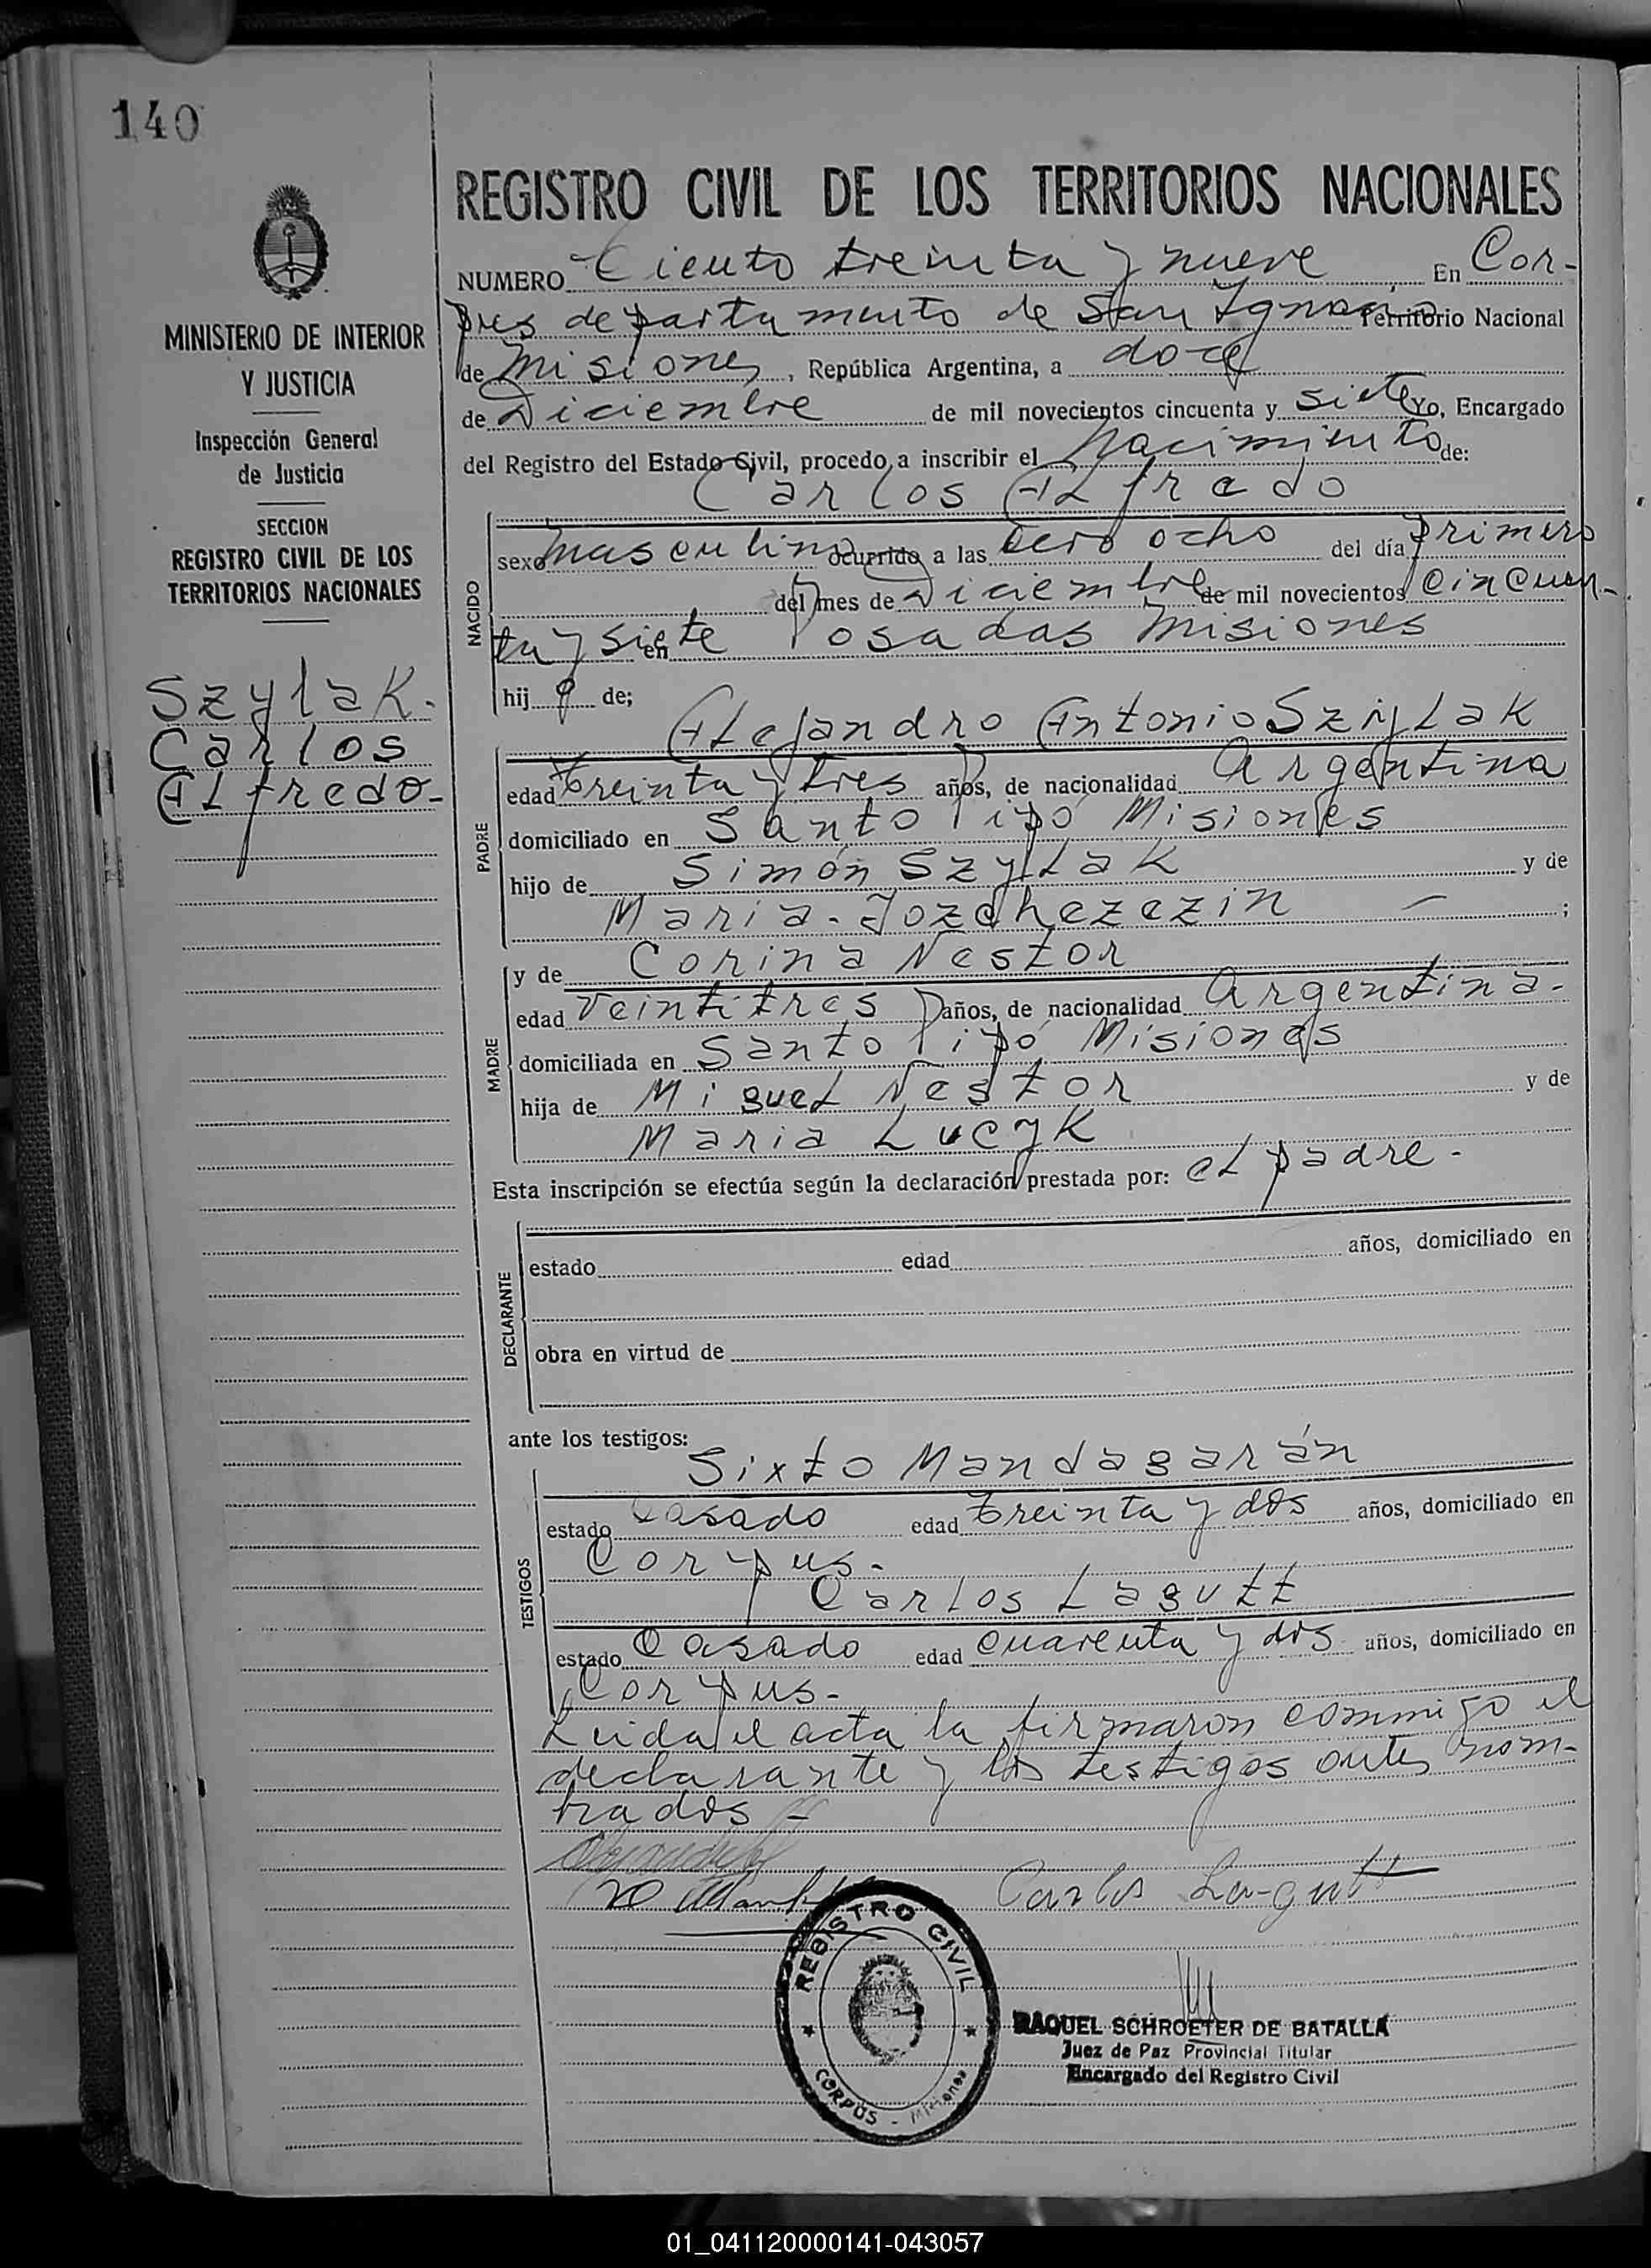 140
REGISTRO CIVIL DE LOS TERRITORIOS NACIONALES
NUMERO Ciento treinta y nueve En Cor-
pus departamento de San Ignacio Territorio Nacional
de Misiones, República Argentina, a doce
de Diciembre de mil novecientos cincuenta y siete Yo, Encargado
del Registro del Estado Civil, procedo a inscribir el Nacimiento de:
Carlos Alfredo
NACIDO
sexo masculino ocurrido a las cero ocho del día primero
del mes de Diciembre de mil novecientos cincuen-
ta y siete en Posadas Misiones
hijo de;
Alejandro Antonio Szylak
PADRE
edad treinta y tres años, de nacionalidad Argentina
domiciliado en Santo Pipó Misiones
hijo de Simón Szylak y de
Maria Jozchezezin - ;
MADRE
y de Corina Nestor
edad veintitres años, de nacionalidad Argentina-
domiciliada en Santo Pipó Misiones
hija de Miguel Nestor y de
Maria Lucyk
Esta inscripción se efectúa según la declaración prestada por: el padre-
DECLARANTE
estado edad años, domiciliado en
obra en virtud de
ante los testigos:
Sixto Mandagarán
TESTIGOS
estado Casado edad treinta y dos años, domiciliado en
Corpus-
Carlos Lagutt
estado Casado edad cuarenta y dos años, domiciliado en
Corpus-
Leida el acta la firmaron conmigo el
declarante y los testigos antes nom-
brados -
Carlos Lagutt
REGISTRO CIVIL
CORPUS - Misiones
RAQUEL SCHROETER DE BATALLA
Juez de Paz Provincial Titular
Encargado del Registro Civil
MINISTERIO DE INTERIOR
Y JUSTICIA
Inspección General
de Justicia
SECCION
REGISTRO CIVIL DE LOS
TERRITORIOS NACIONALES
Szylak.
Carlos
Alfredo-
01_041120000141-043057